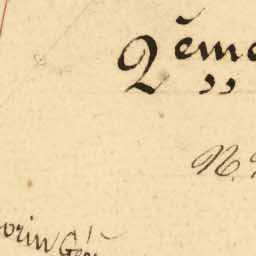 2ème
N.
orin Gé